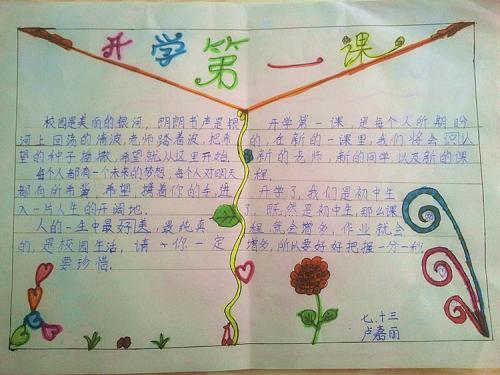 开学第一课
校园是美丽的银河，朗朗书声是银
河上回荡的清波，老师踏着波，把希
望的种子播撒，希望就从这里开始，
每个人都有一个未来的梦想，每个人对明天
都有所希望，希望撑着你的手，进
入一片人生的开阔地。
人的一生中最好的、最纯真
的，是校园生活，请你一定
要珍惜。
开学第一课，是每个人所期盼
的，在新的一课里，我们将会认识
新的老师，新的同学，以及新的课
程。
开学了，我们是初中生
了，既然是初中生，那么课
程就会增多，作业就会
增多，所以要好好把握一分一秒
七.十三
卢嘉丽